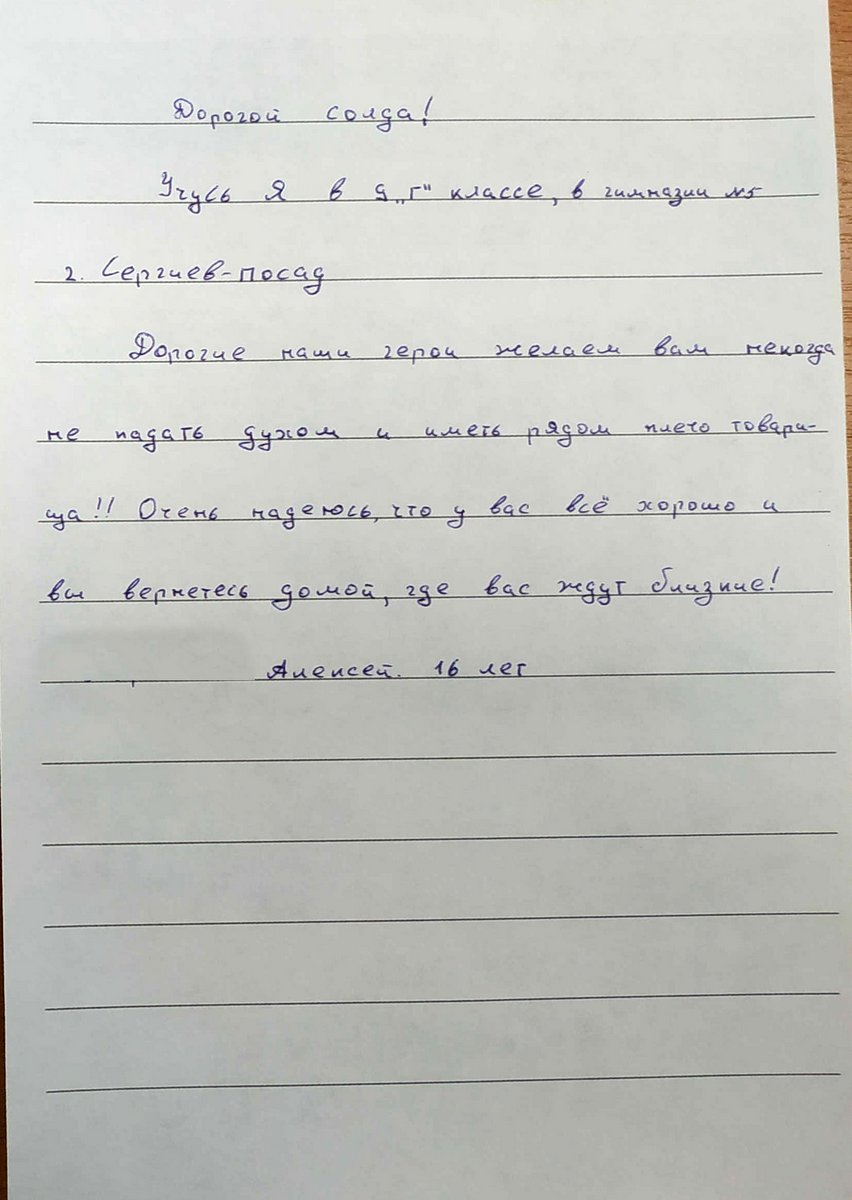 Дорогой солда!
Учусь я в 9 „г" классе, в гимназии №5
г. Сергиев-посад
Дорогие наши герои желаем вам некогда
не падать духом и иметь рядом плечо товари-
ща!! Очень надеюсь, что у вас всё хорошо и
вы вернетесь домой, где вас ждут близкие!
Алексей. 16 лет